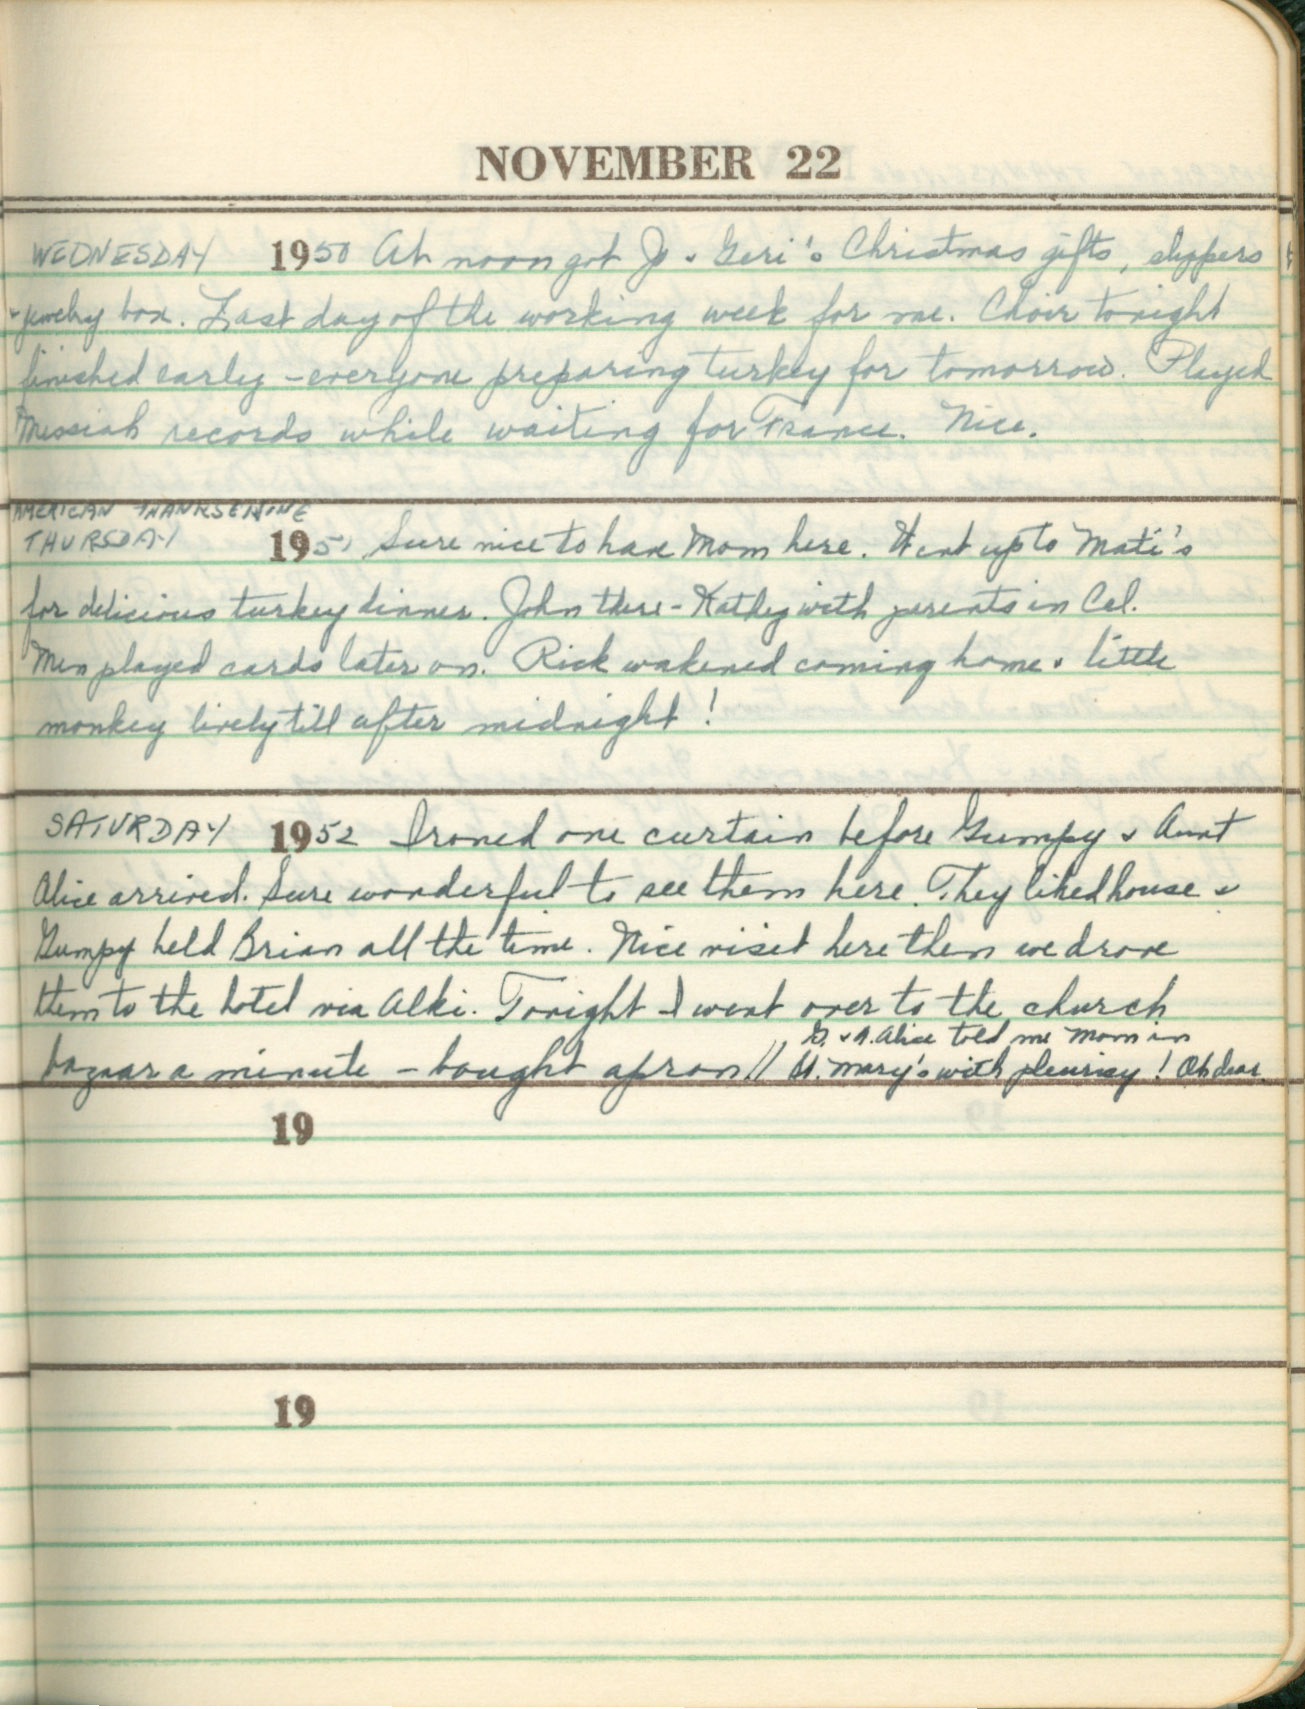 NOVEMBER 22
WEDNESDAY 1950 At noon got Jo & Geri's Christmas gifts, slippers
& jewelry box. Last day of the working week for me. Choir tonight
finished early - everyone preparing turkey for tomorrow. Played
Messiah records while waiting for France. Nice.
AMERICAN THANKSGIVING
THURSDAY 1951 Sure nice to have Mom here. Went up to Mati's
for delicious turkey dinner. John there - Kathy with parents in Cal.
Men played cards later on. Rick wakened coming home & little
monkey lively till after midnight!
SATURDAY 1952 Ironed one curtain before Gumpy & Aunt
Alice arrived. Sure wonderful to see them here. They liked house &
Gumpy held Brian all the time. Nice visit here then we drove
them to the hotel via Alki. Tonight I went over to the church
G. & A. Alice told me Mom in
bazaar a minute - bought apron // St. Mary's with pleurisy! Oh dear.
19
19